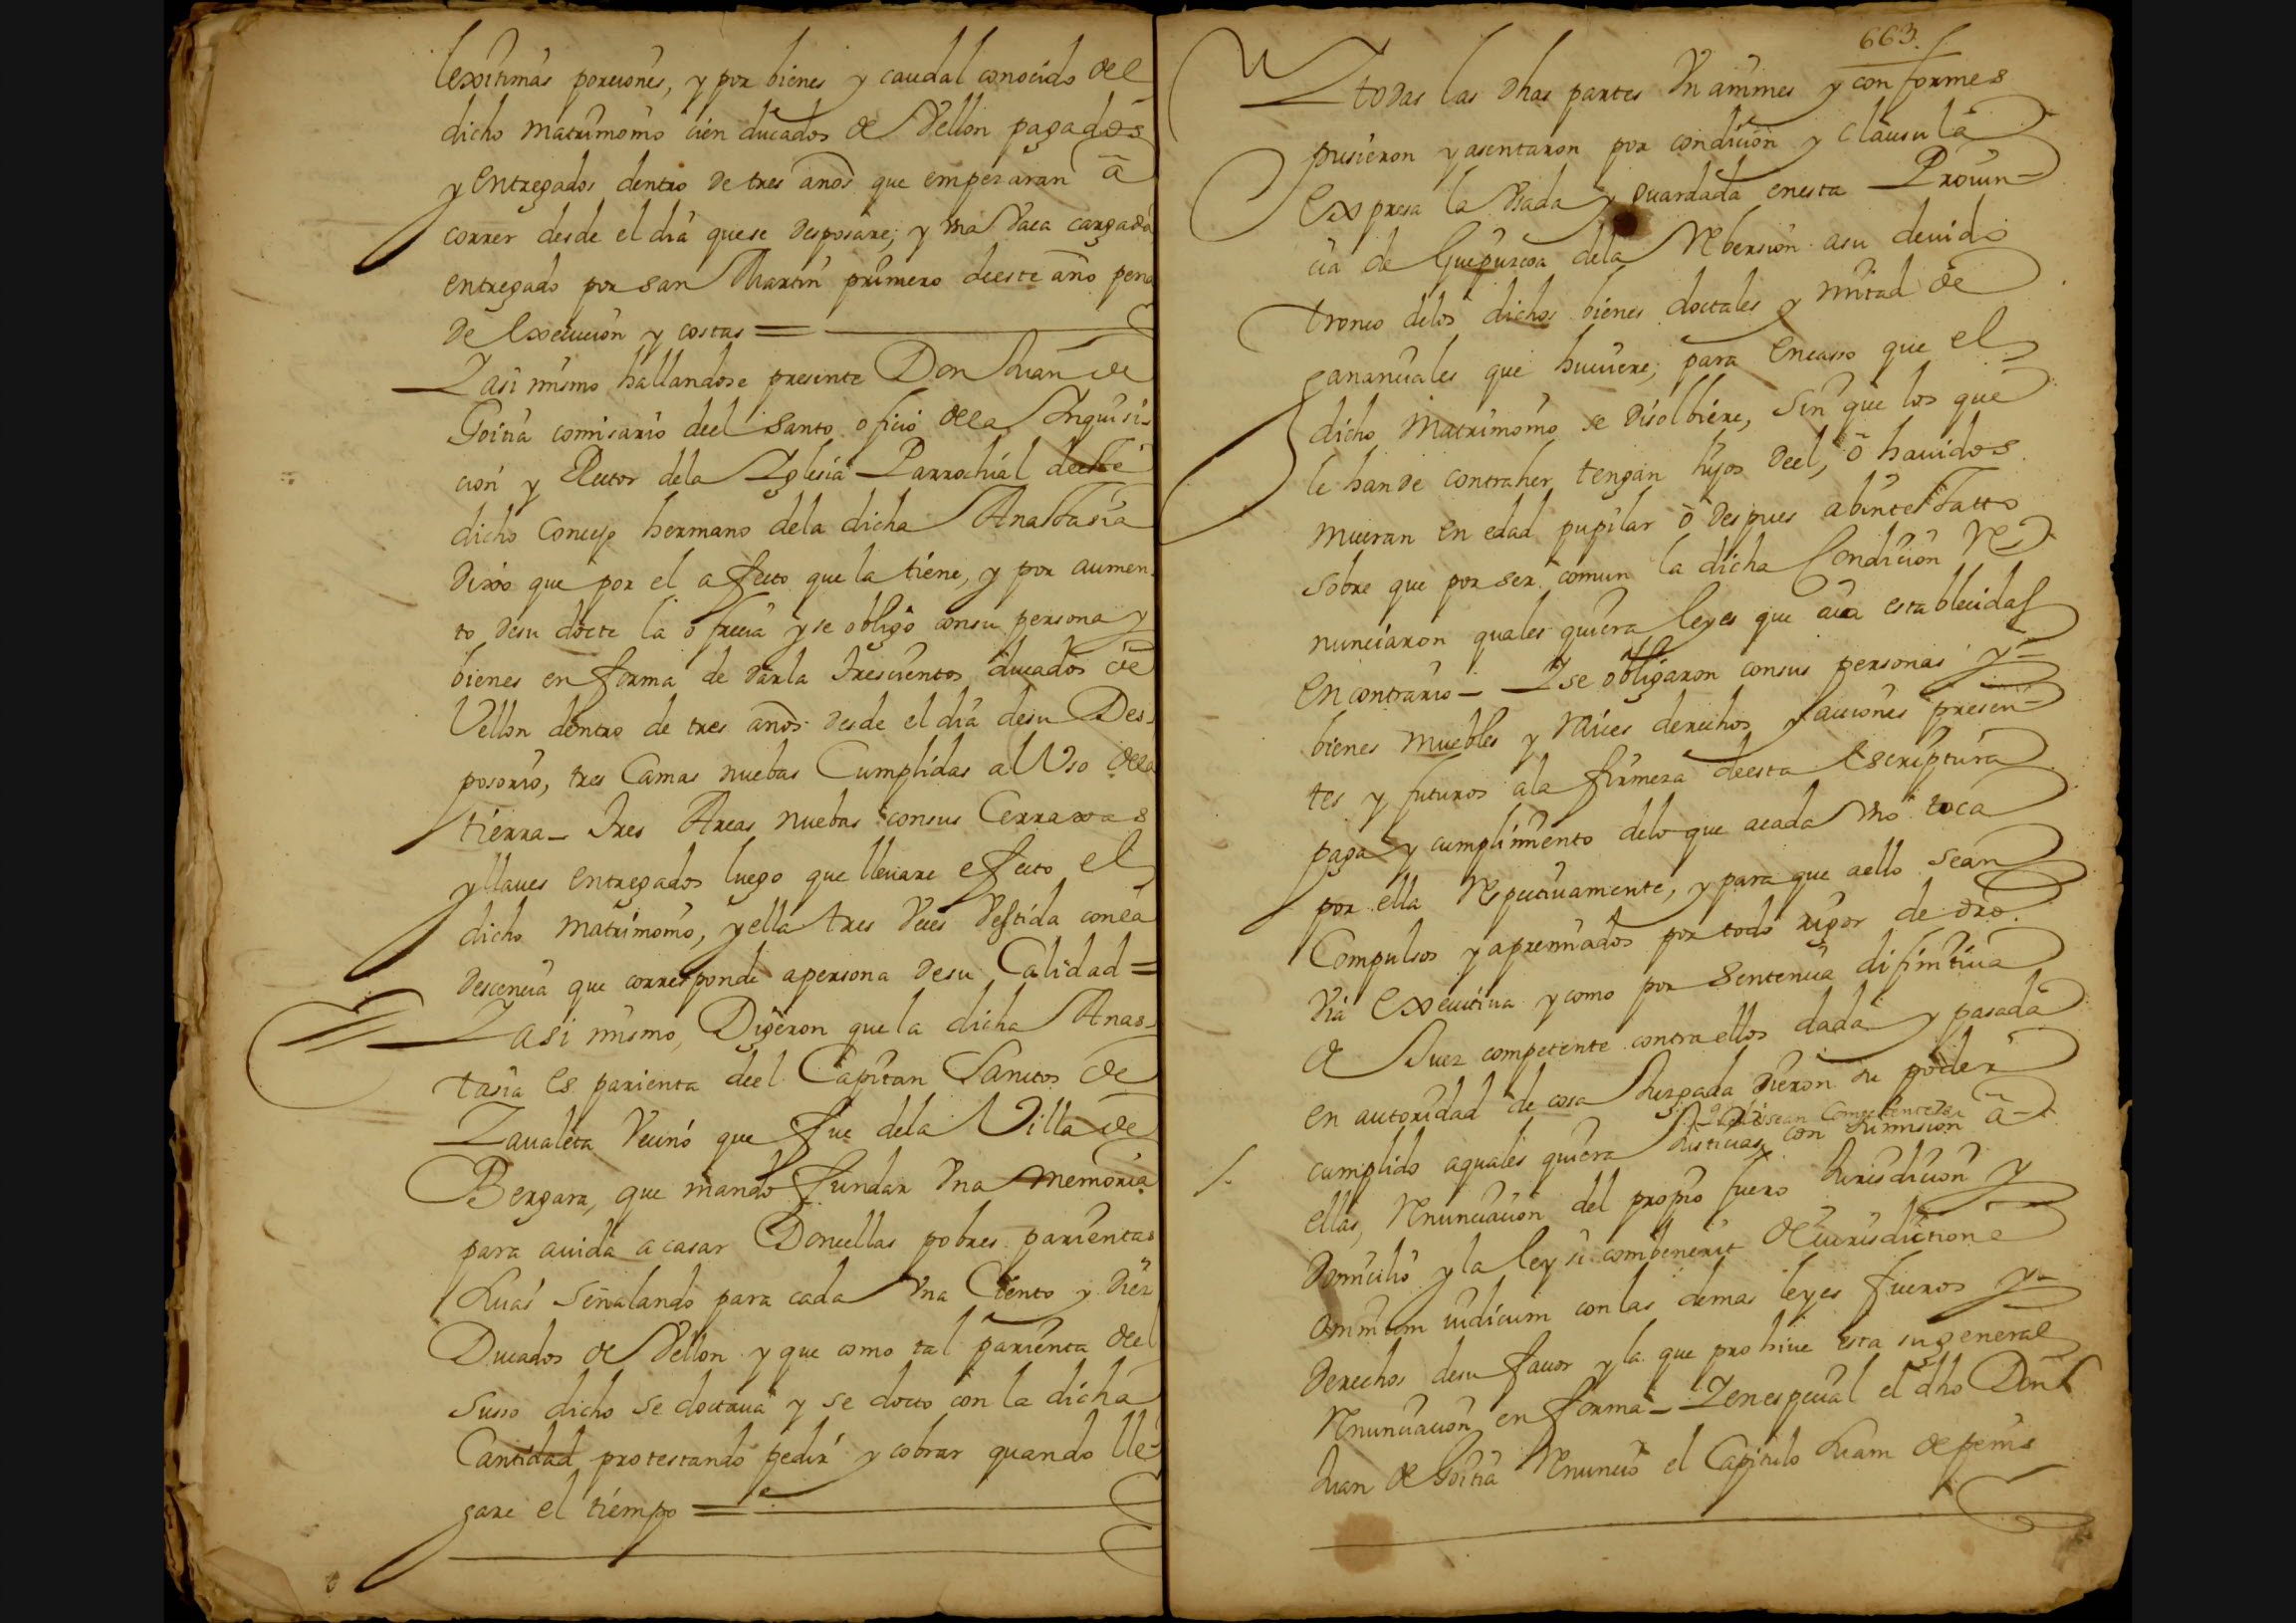 lexitimas porciones, y por bienes y caudal conocido del
dicho matrimonio cien ducados de Vellon pagados
y entregados dentro de tres años que empezaran â
correr desde el dia que se desposare; y una Vaca cargada
entregado por san Martin primero deeste año pena
de execucion y costas =
Y asi mismo hallandose presente Don Juan de
Goitia comisario deel santo oficio de la Inquisi-
cion y Rector dela Yglesia Parrochial deeste
dicho Concejo hermano dela dicha Anastasia
dixo que por el afecto que la tiene, y por aumen-
to desu docte la ofrecia y se obligo consu persona y
bienes en forma de darla trescientos ducados de
Vellon dentro de tres años desde el dia desu Des-
posorio, tres Camas nuebas Cumplidas al Uso dela
tierra - Tres Arcas nuebas consus Cerraxas
y llaves entregados luego que llevare efecto el
dicho matrimonio, y ella tres Veces Vestida con la
descencia que corresponde apersona desu Calidad =
Y asi mismo, Digeron que la dicha Anas-
tasia es parienta deel Capitan Sanctos de
Zavaleta Vecino que fue dela Villa de
Bergara, que mando fundar Una memoria
para auida a casar Doncellas pobres parientas
suas señalando para cada Una Ciento y diez
Ducados de Vellon y que como tal parienta del
suso dicho se doctava y se docto con la dicha
Cantidad protestando pedir y cobrar quando lle-
gare el tiempo =
663.
Y todas las dhas partes Unanimes y conformes
pusieron y asentaron por condicion y clausula
expresa la Usada y Guardada enesta Provin-
cia de Guipuzcoa dela Rebersion asu devido
tronco delos dichos bienes doctales y mitad de
gananciales que huviere; para encasso que el
dicho Matrimonio se disolbiere, sin que los que
le hande contraher tengan hijos deel, ô havidos
mueran en edad pupilar ô despues abintestatto
sobre que por ser comun la dicha Condicion Re-
nunciaron quales quiera leyes que aia establecidas
en contrario - Y se obligaron consus personas y
bienes muebles y Raices derechos y acciones presen-
tes y futuros ala firmeza deesta escriptura
paga y cumplimiento delo que acada Uno toca
por ella Respectivamente, y para que aello sean
Compulsos y apremiados por todo rigor de dro.
Via executiva y como por sentencia difinitiva
de Juez competente contra ellos dada y pasada
en autoridad de cosa Juzgada dieron su poder
sean Competentes
cumplido aquales quiera Justicias con sumision â
ellas, Renunciacion del propio fuero Jurisdicion y
domicilio y la ley si combenerit de iurisdictione
omnium iudicum con las demas leyes fueros y
derechos desu favor y la que prohive esta su general
Renunciacion en forma - Y en especial el dho Don
Juan de Goitia Renuncio el Capitulo suam de penis